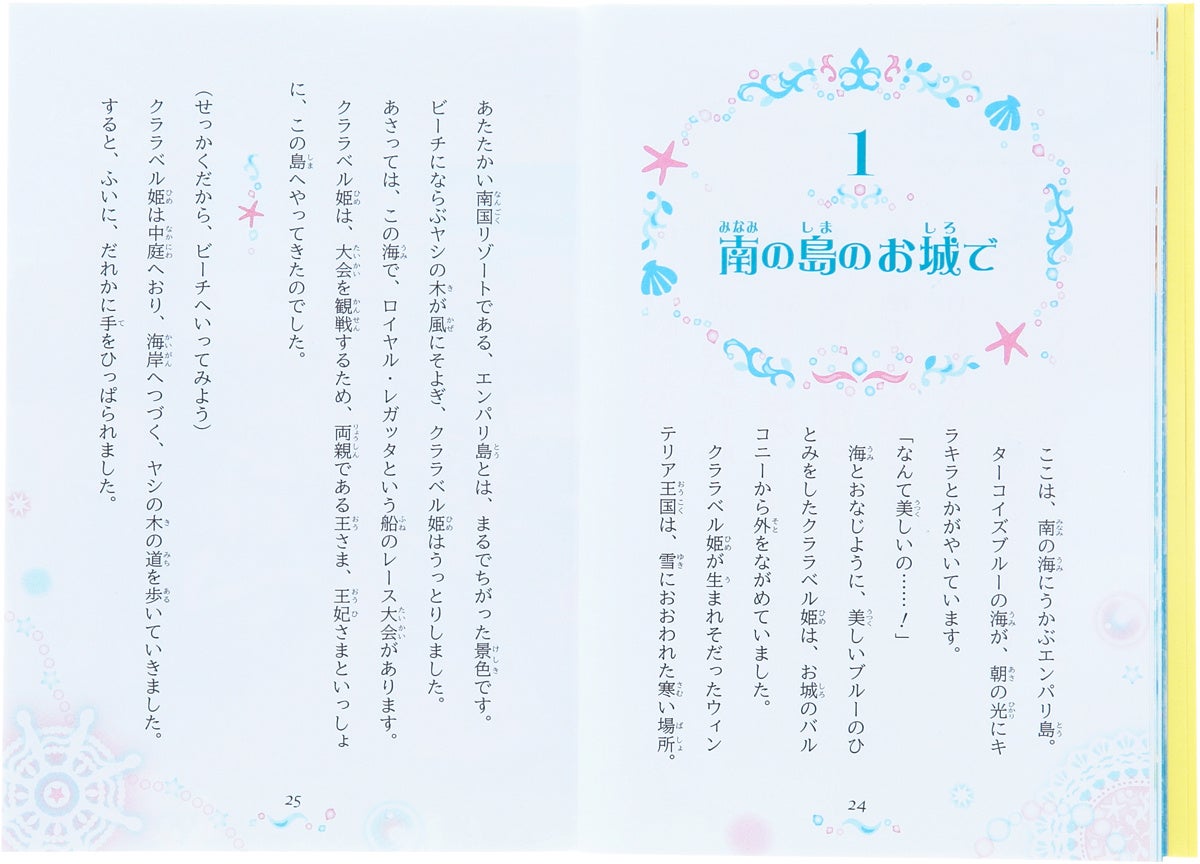 1
南の島のお城で
ここは、南の海にうかぶエンパリ島。
ターコイズブルーの海が、朝の光にキ
ラキラとかがやいています。
「なんて美しいの……！」
海とおなじように、美しいブルーのひ
とみをしたクララベル姫は、お城のバル
コニーから外をながめていました。
クララベル姫が生まれそだったウィン
テリア王国は、雪におおわれた寒い場所。
24
あたたかい南国リゾートである、エンパリ島とは、まるでちがった景色です。
ビーチにならぶヤシの木が風にそよぎ、クララベル姫はうっとりしました。
あさっては、この海で、ロイヤル・レガッタという船のレース大会があります。
クララベル姫は、大会を観戦するため、両親である王さま、王妃さまといっしょ
に、この島へやってきたのでした。
（せっかくだから、ビーチへいってみよう）
クララベル姫は中庭へおり、海岸へつづく、ヤシの木の道を歩いていきました。
すると、ふいに、だれかに手をひっぱられました。
25